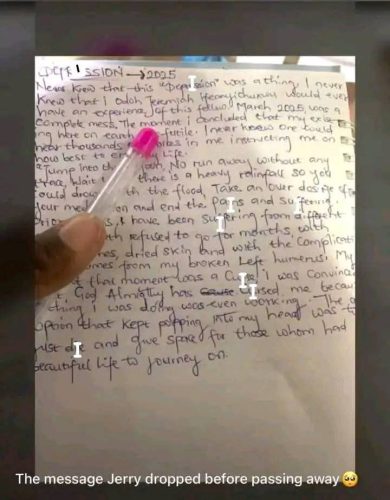 DEPRESSION → 2025
Never knew that this "Depression" was a thing, I never
knew that I Odoh Jeremiah would ever
have an experience of this fellow. March 2025, was a
complete mess, The moment I concluded that my exist
ing here on earth futile. I never knew one could
hear thousands in me instructing me on
how best to life.
"Jump into the No run away without any
trace, Wait there is a heavy rainfall so you
could drown with the flood, Take an over dose of
your and end the pains and suffering".
I have been suffering from different
refused to go for months, with
dried skin and with the complicati
from my broken Left humerus! My
at that moment was a Curse, I was convinc
God Almighty has cursed me becau
thing I was doing was even working. The
option that kept popping into my head was t
just die and give space for those whom had
beautiful life to journey on.
The message Jerry dropped before passing away🥺